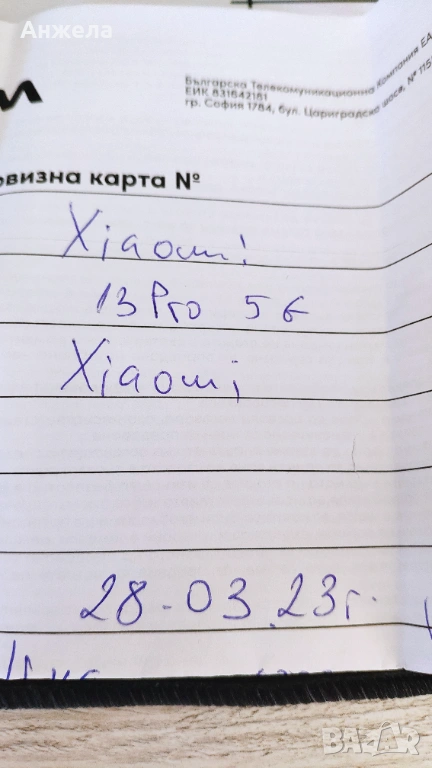 Анжела
Българска Телекомуникационна Компания ЕА
ЕИК 831642181
гр. София 1784, бул. Цариградско шосе, № 115
овизна карта №
Xiaomi
13 Pro 5G
Xiaomi
28.03.23г.
BAZAR